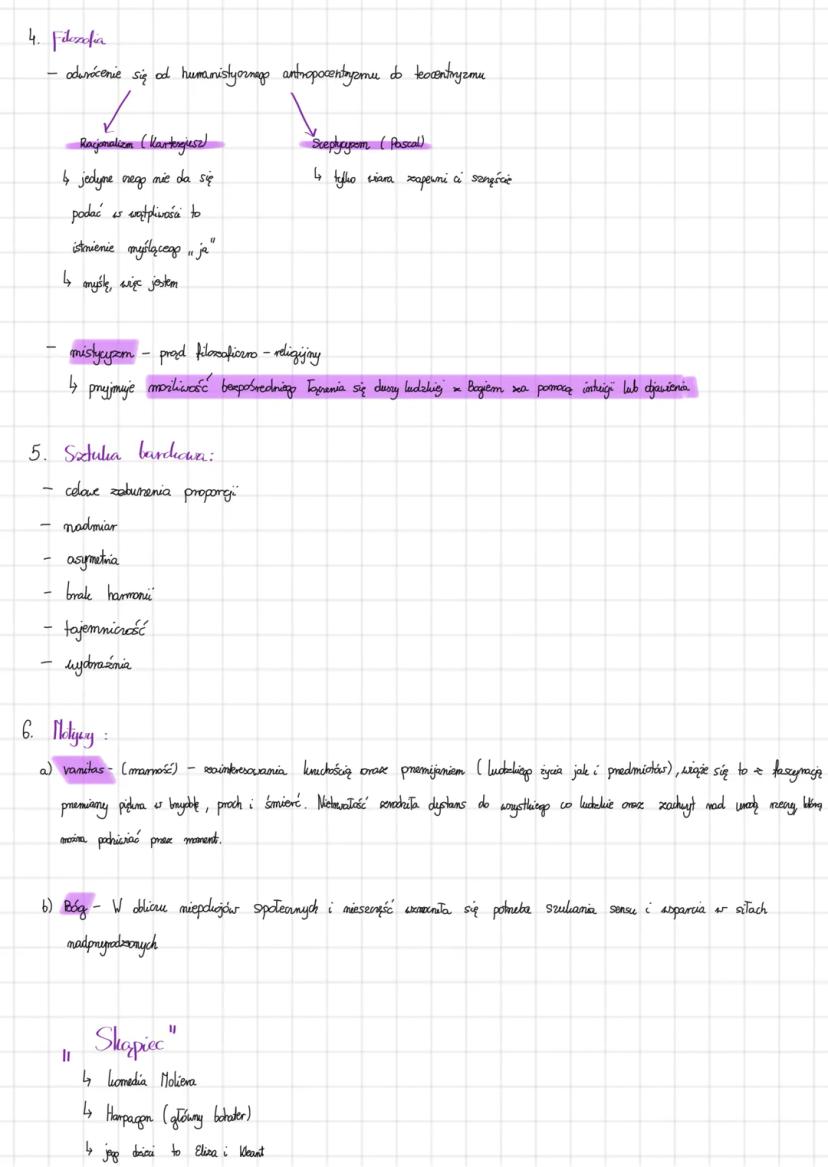 4. Filozofia
- odwrócenie się od humanistycznego antropocentryzmu do teocentryzmu
Racjonalizm (Kartezjusz)
Sceptycyzm (Pascal)
↳ jedyne czego nie da się
podać w wątpliwość to
istnienie myślącego „ja"
↳ myślę, więc jestem
↳ tylko wiara zapewni ci szczęście
- mistycyzm - prąd filozoficzno - religijny
↳ przyjmuje możliwość bezpośredniego łączenia się duszy ludzkiej z Bogiem za pomocą intuicji lub objawienia
5. Sztuka barokowa:
- celowe zaburzenia proporcji
- nadmiar
- asymetria
- brak harmonii
- tajemniczość
- wyobraźnia
6. Motywy:
a) vanitas - (marność) - zainteresowania kruchością oraz przemijaniem (ludzkiego życia jak i przedmiotów), wiąże się to z fascynacją
przemiany piękna w brzydotę, proch i śmierć. Nietrwałość zrodziła dystans do wszystkiego co ludzkie oraz zachwyt nad urodą rzeczy, którą
można podziwiać przez moment.
b) Bóg - W obliczu niepokojów społecznych i nieszczęść wzmocniła się potrzeba szukania sensu i wsparcia w siłach
nadprzyrodzonych
„Skąpiec"
↳ komedia Moliera
↳ Harpagon (główny bohater)
↳ jego dzieci to Eliza i Kleant